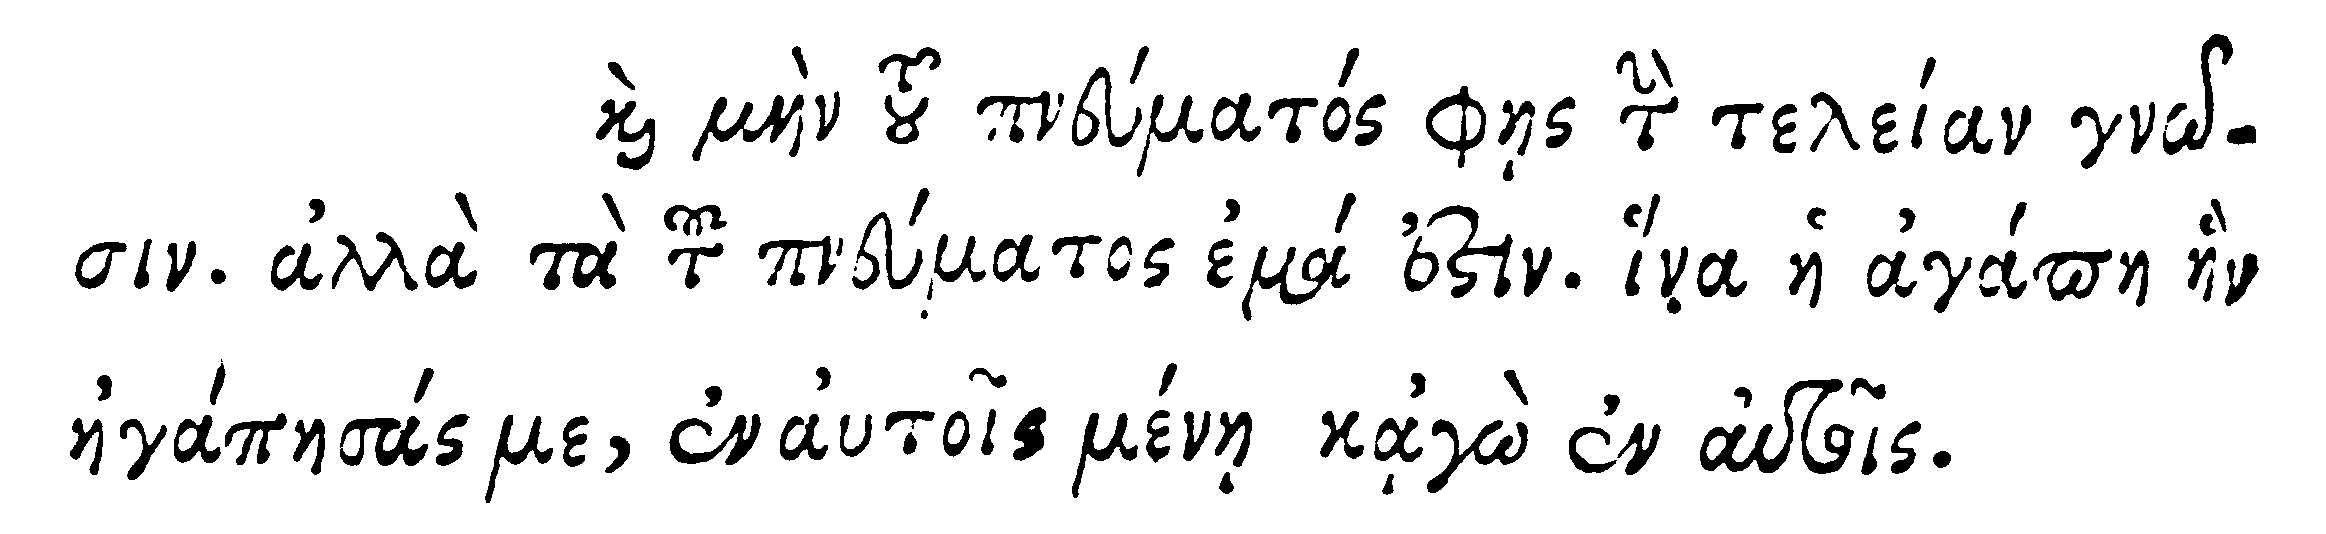 ϗ̀ μὴν τοῦ πνεύματός φῃς τὴν τελείαν γνῶ-
σιν. ἀλλὰ τὰ τοῦ πνεύματος ἐμά ἐστιν. ἵνα ἡ ἀγάπη ἣν
ἠγάπησάς με, ἐν αὐτοῖς μένῃ κᾀγὼ ἐν αὐτοῖς.